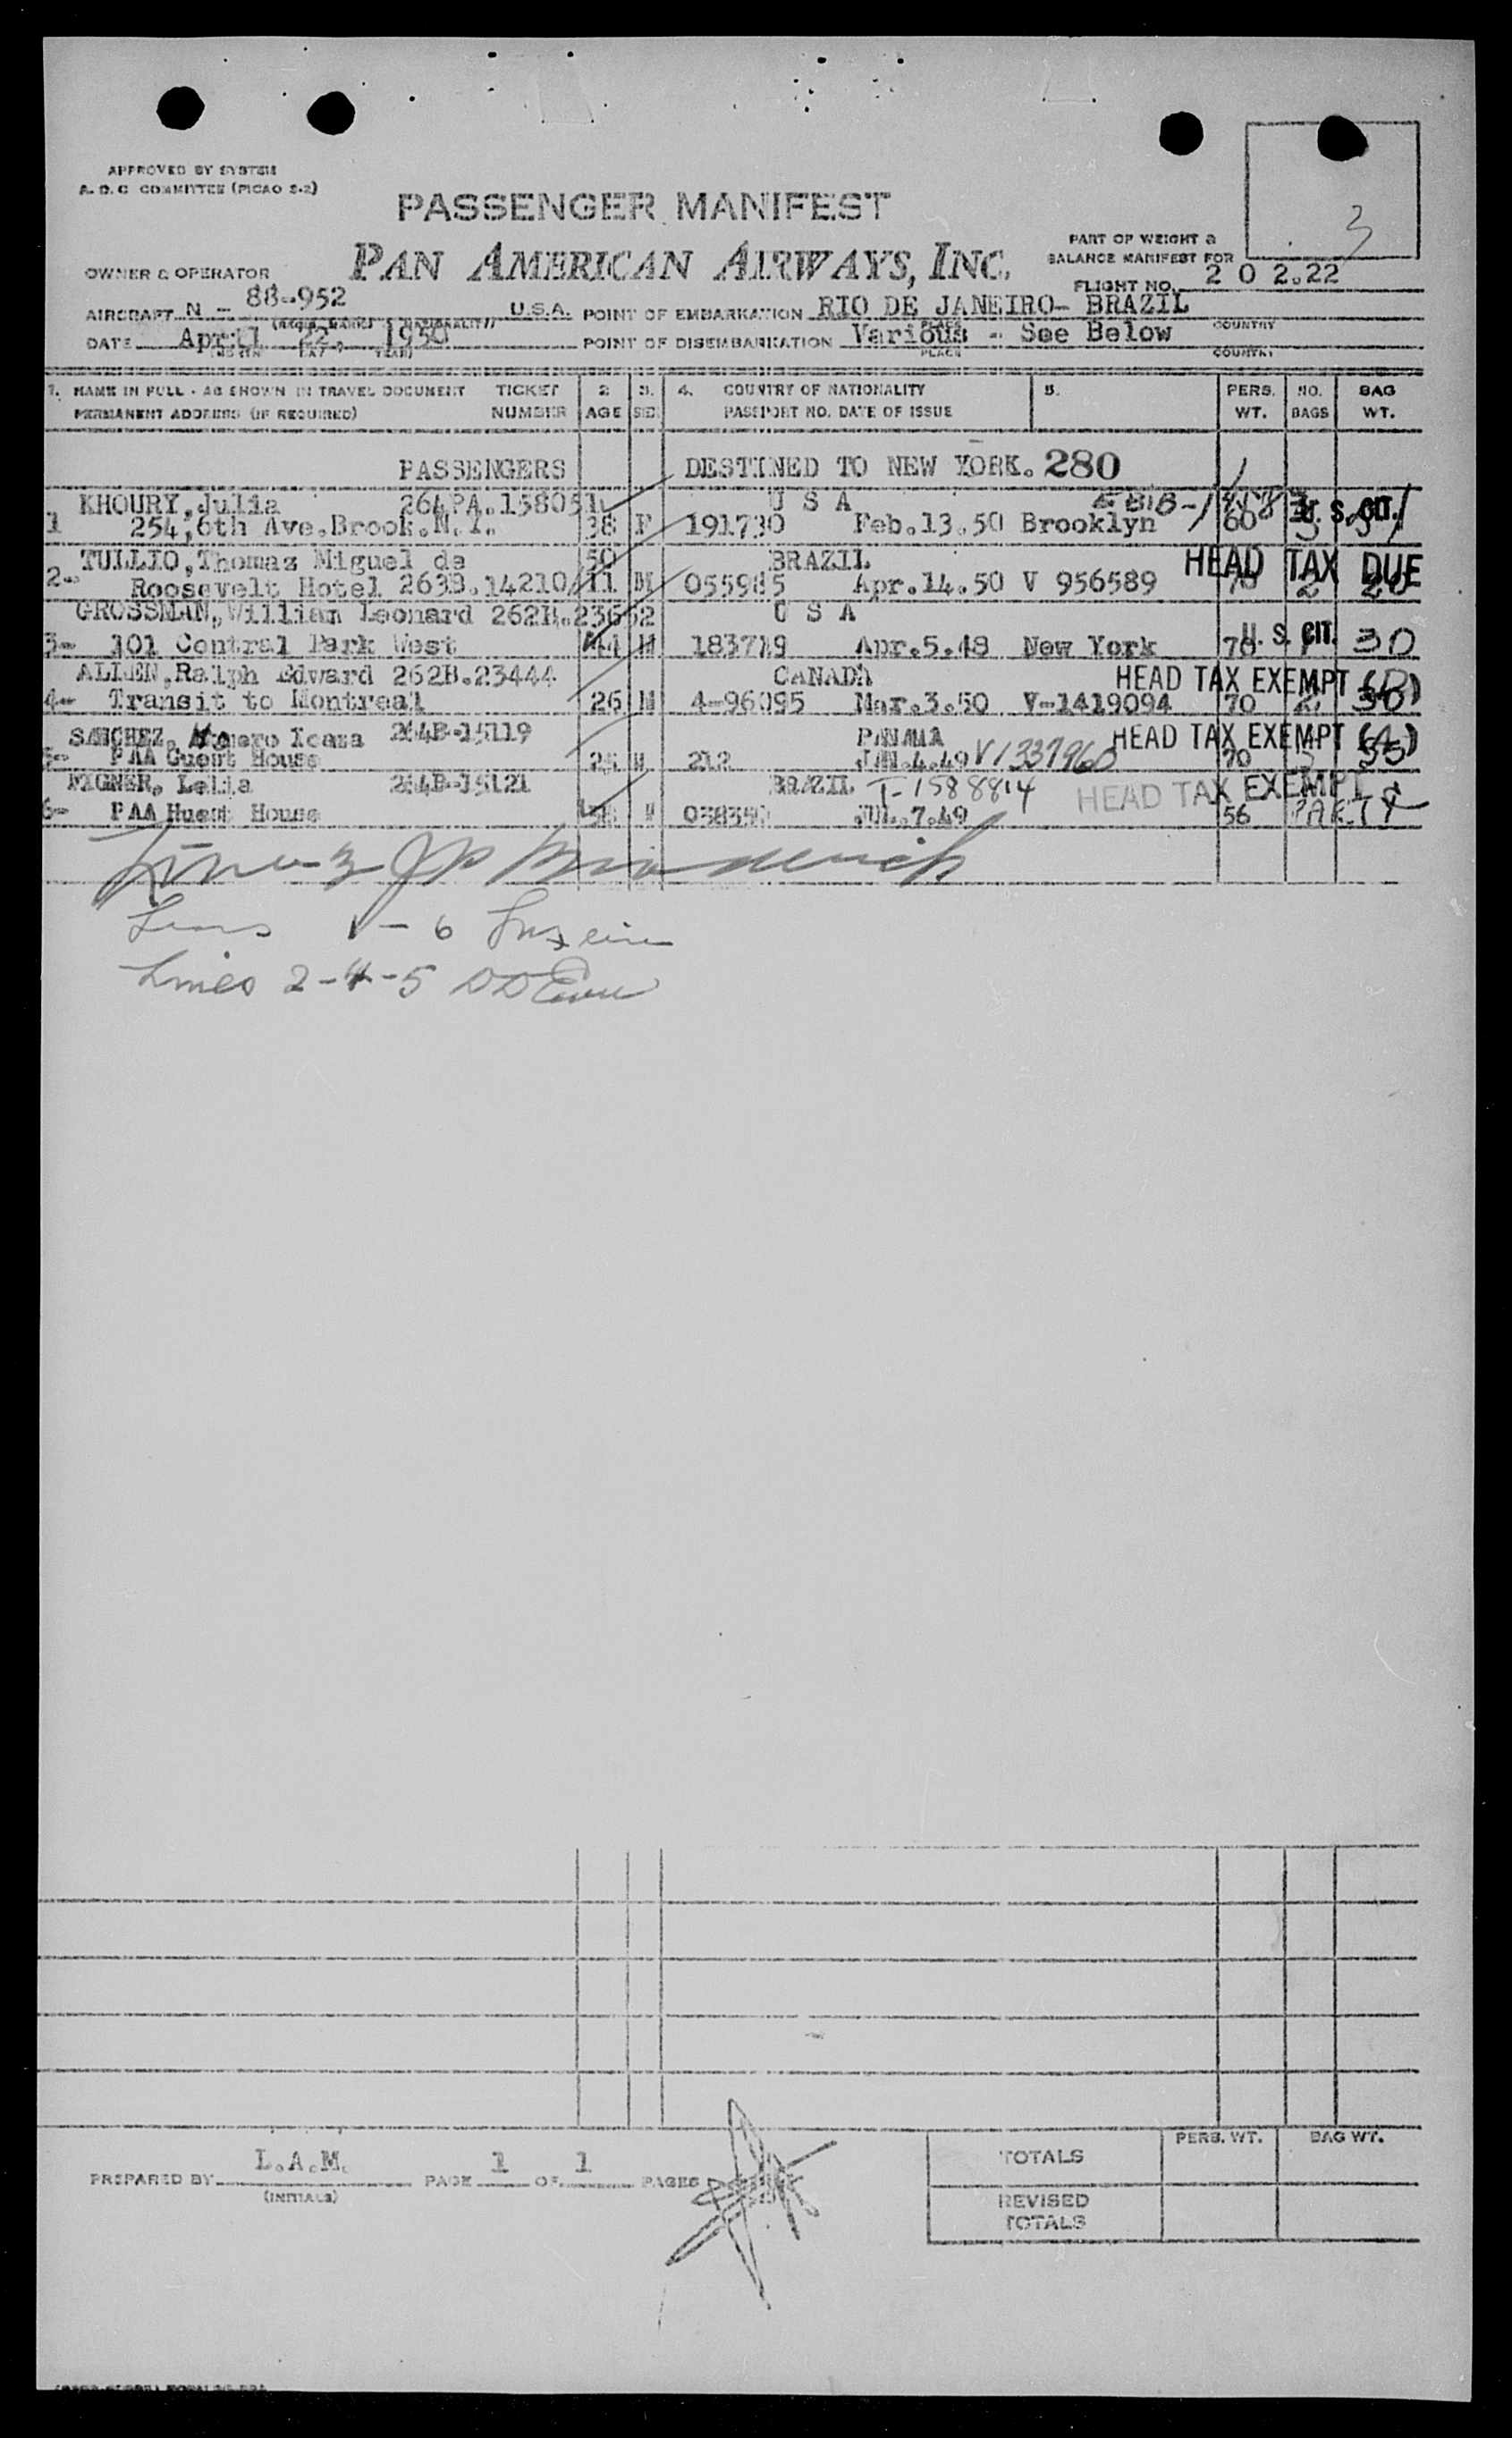 APPROVED BY SYSTEM
A.O.C COMMITTEE (PICAO S-2)
PASSENGER MANIFEST
3
PAN AMERICAN AIRWAYS, INC.
PART OF WEIGHT &
BALANCE MANIFEST FOR
FLIGHT NO. 2 0 2.22
OWNER & OPERATOR
AIRCRAFT N - 88-952 U.S.A. POINT OF EMBARKATION RIO DE JANEIRO- BRAZIL
PLACE COUNTRY
DATE April 22, 1950 POINT OF DISEMBARKATION Various - See Below
(MONTH DAY YEAR) PLACE COUNTRY
1. NAME IN FULL - AS SHOWN IN TRAVEL DOCUMENT TICKET 2 3. 4. COUNTRY OF NATIONALITY 5. PERS. NO. BAG
PERMANENT ADDRESS (IF REQUIRED) NUMBER AGE SEX PASSPORT NO. DATE OF ISSUE WT. BAGS WT.
PASSENGERS DESTINED TO NEW YORK. 280
KHOURY, Julia 264PA.158051 U S A U. S. CIT.
1 254, 6th Ave. Brook. N.Y. 38 F 191730 Feb.13.50 Brooklyn 60
TULLIO, Thomaz Miguel de 50 BRAZIL HEAD TAX DUE
2- Roosevelt Hotel 263B.14210 11 M 055985 Apr.14.50 V 956589 70 2 20
GROSSMAN, William Leonard 262B.23652 U S A U. S. CIT.
3- 101 Central Park West 44 M 183719 Apr.5.48 New York 70 1 30
ALLEN, Ralph Edward 262B.23444 CANADA HEAD TAX EXEMPT
4- Transit to Montreal 26 M 4-96095 Mar.3.50 V-1419094 70 2 30
SANCHEZ, Icaza 264B-15119 PANAMA HEAD TAX EXEMPT (A)
5- PAA Guest House 212 JAN.4.49 V1337960 70 3 55
Lelia 264B-15121 BRAZIL T-1588814 HEAD TAX EXEMPT
6- PAA Huest House JUL.7.49 56
Lines 2-4-5
PREPARED BY L.A.M. PAGE 1 OF 1 PAGES
(INITIALS)
PERS. WT. BAG WT.
TOTALS
REVISED
TOTALS